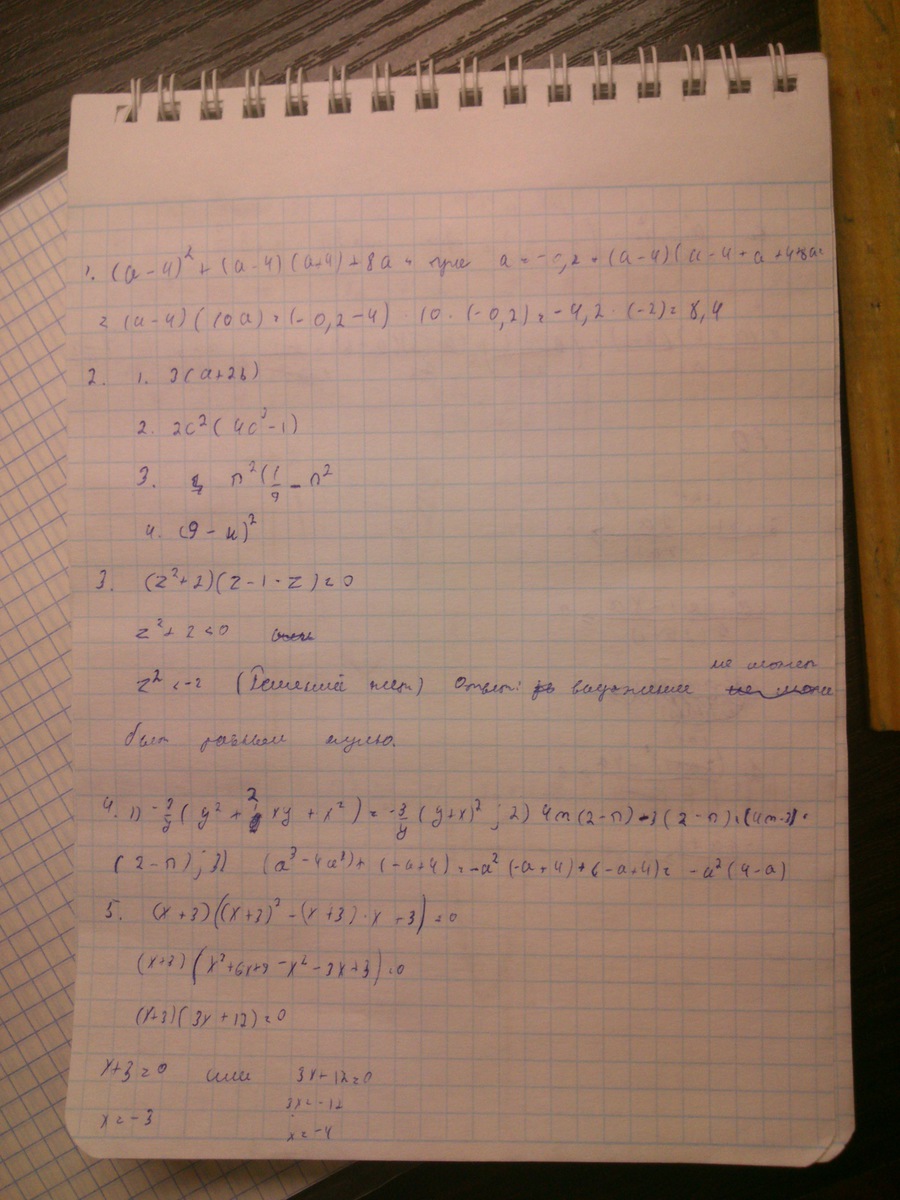 1. (a-4)² + (a-4)(a+4) + 8a = при a = -0,2 = (a-4)(a-4+a+4+8a)=
= (a-4)(10a) = (-0,2-4) · 10 · (-0,2) = -4,2 · (-2) = 8,4
2. 1. 3(a+2b)
2. 2c²(4c³-1)
3. n²(1/9 - n²
4. (9-k)²
3. (z²+2)(z-1-z)=0
z²+2=0
z²=-2 (Решений нет) Ответ: выражение не может
быть равным нулю.
4. 1) (y² + 2xy + x²) = (y+x)²; 2) 4m(2-n)-3(2-n)=(4m-3)·
(2-n); 3) (a³-4a²)+(-a+4)=-a²(-a+4)+(-a+4)= -a²(4-a)
5. (x+3)((x+3)²-(x+3)·x+3)=0
(x+3)(x²+6x+9-x²-3x+3)=0
(x+3)(3x+12)=0
x+3=0 или 3x+12=0
3x=-12
x=-3
x=-4